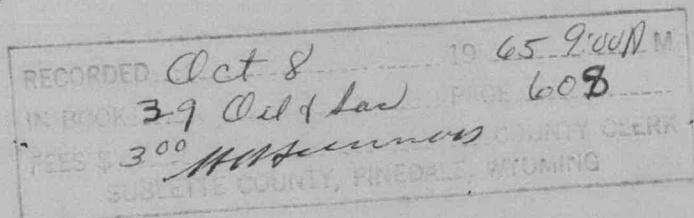 RECORDED Oct 8 19 65 9:00A M
IN BOOK 39 Oil & Gas PAGE 608
FEES $ 3 00 COUNTY CLERK
SUBLETTE COUNTY, PINEDALE, WYOMING